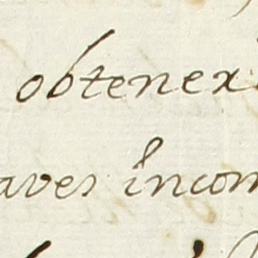 obtener
aves incon